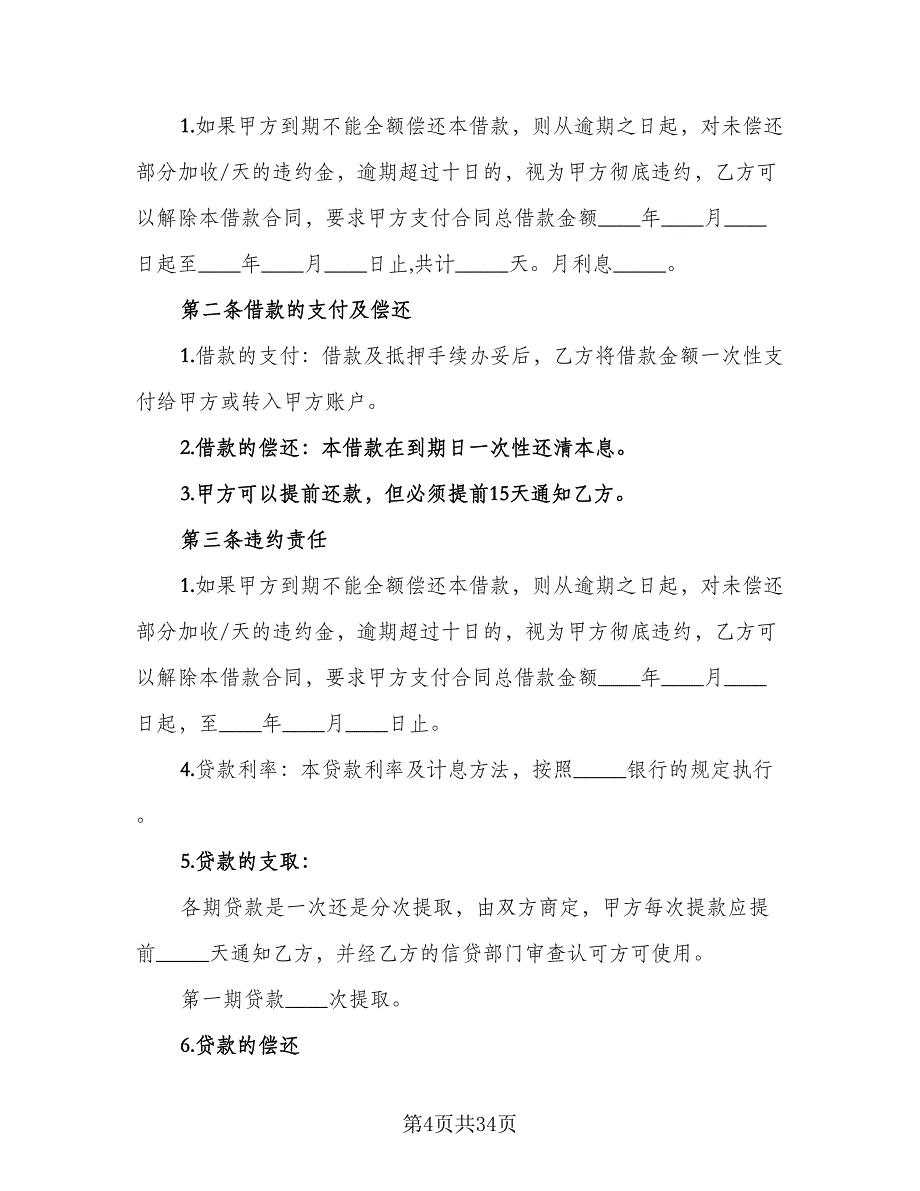 1.如果甲方到期不能全额偿还本借款，则从逾期之日起，对未偿还
部分加收/天的违约金，逾期超过十日的，视为甲方彻底违约，乙方可
以解除本借款合同，要求甲方支付合同总借款金额____年____月____
日起至____年____月____日止,共计_____天。月利息_____。
第二条借款的支付及偿还
1.借款的支付：借款及抵押手续办妥后，乙方将借款金额一次性支
付给甲方或转入甲方账户。
2.借款的偿还：本借款在到期日一次性还清本息。
3.甲方可以提前还款，但必须提前15天通知乙方。
第三条违约责任
1.如果甲方到期不能全额偿还本借款，则从逾期之日起，对未偿还
部分加收/天的违约金，逾期超过十日的，视为甲方彻底违约，乙方可
以解除本借款合同，要求甲方支付合同总借款金额____年____月____
日起，至____年____月____日止。
4.贷款利率：本贷款利率及计息方法，按照_____银行的规定执行
。
5.贷款的支取：
各期贷款是一次还是分次提取，由双方商定，甲方每次提款应提
前_____天通知乙方，并经乙方的信贷部门审查认可方可使用。
第一期贷款____次提取。
6.贷款的偿还
第4页共34页